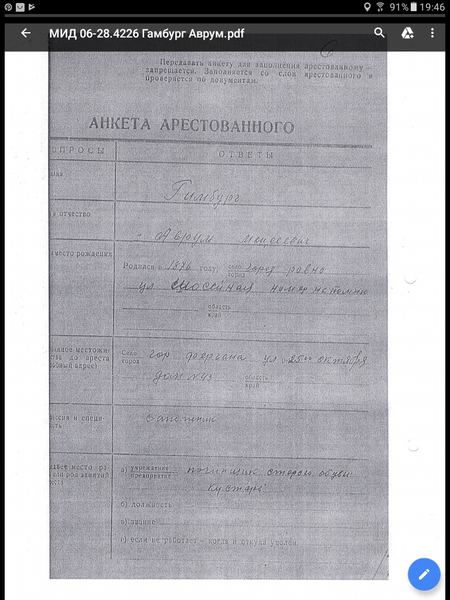 19:46
91%
МИД 06-28.4226 Гамбург Аврум.pdf
6
Передавать анкету для заполнения арестованному —
запрещается. Заполняется со слов арестованного и
проверяется по документам.
АНКЕТА АРЕСТОВАННОГО
ОПРОСЫ
ОТВЕТЫ
Гимбург
отчество
Аврум Моисеевич
место рождения
Родился в 1876 году, село город гор. Ровно
ул Шосейная номер не помню
область
край
до ареста
адрес)
Село город гор Фергана ул 25 лет октября
область
край
Сапожник
а) учреждение предприятие починщик старой обуви
кустарь
б) должность
в) звание
г) если не работает — когда и откуда уволен